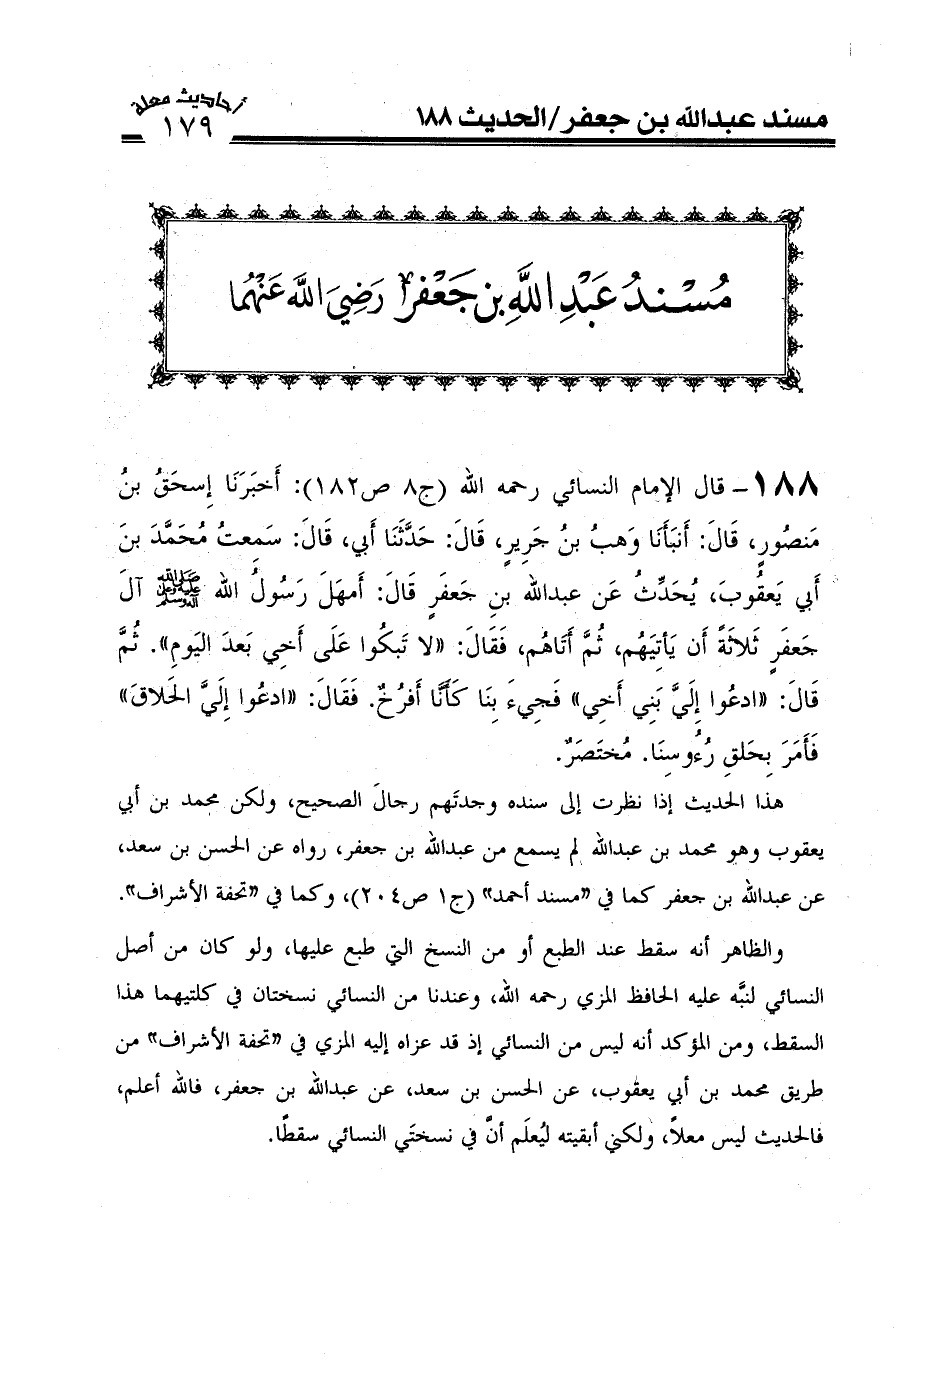 مسند عبدالله بن جعفر/الحديث ١٨٨
أحاديث معلة
١٧٩
مُسْنَدُ عَبْدِ اللَّهِ بن جَعْفَر رَضِيَ اللَّه عَنْهُمَا
١٨٨- قال الإمام النسائي رحمه الله (ج٨ ص١٨٢): أَخبَرَنَا إِسحَقُ بنُ
مَنصُورٍ، قَالَ: أَنبَأَنَا وَهبُ بنُ جَرِيرٍ، قَالَ: حَدَّثَنَا أَبِي، قَالَ: سَمِعتُ مُحَمَّدَ بنَ
أَبِي يَعقُوبَ، يُحَدِّثُ عَن عبدالله بنِ جَعفَرٍ قَالَ: أَمهَلَ رَسُولُ الله ﷺ آلَ
جَعفَرٍ ثَلاثَةً أَن يَأتِيَهُم، ثُمَّ أَتَاهُم، فَقَالَ: «لا تَبكُوا عَلَى أَخِي بَعدَ اليَومِ». ثُمَّ
قَالَ: «ادعُوا إِلَيَّ بَنِي أَخِي» فَجِيءَ بِنَا كَأَنَّا أَفرُخٌ. فَقَالَ: «ادعُوا إِلَيَّ الحَلاقَ»
فَأَمَرَ بِحَلقِ رُءُوسِنَا. مُختَصَرٌ.
هذا الحديث إذا نظرت إلى سنده وجدتَهم رجالَ الصحيح، ولكن محمد بن أبي
يعقوب وهو محمد بن عبدالله لم يسمع من عبدالله بن جعفر، رواه عن الحسن بن سعد،
عن عبدالله بن جعفر كما في «مسند أحمد» (ج١ ص٢٠٤)، وكما في «تحفة الأشراف».
والظاهر أنه سقط عند الطبع أو من النسخ التي طبع عليها، ولو كان من أصل
النسائي لنبَّه عليه الحافظ المزي رحمه الله، وعندنا من النسائي نسختان في كلتيهما هذا
السقط، ومن المؤكد أنه ليس من النسائي إذ قد عزاه إليه المزي في «تحفة الأشراف» من
طريق محمد بن أبي يعقوب، عن الحسن بن سعد، عن عبدالله بن جعفر، فالله أعلم،
فالحديث ليس معلاً، ولكني أبقيته ليُعلَم أنَّ في نسختَي النسائي سقطًا.